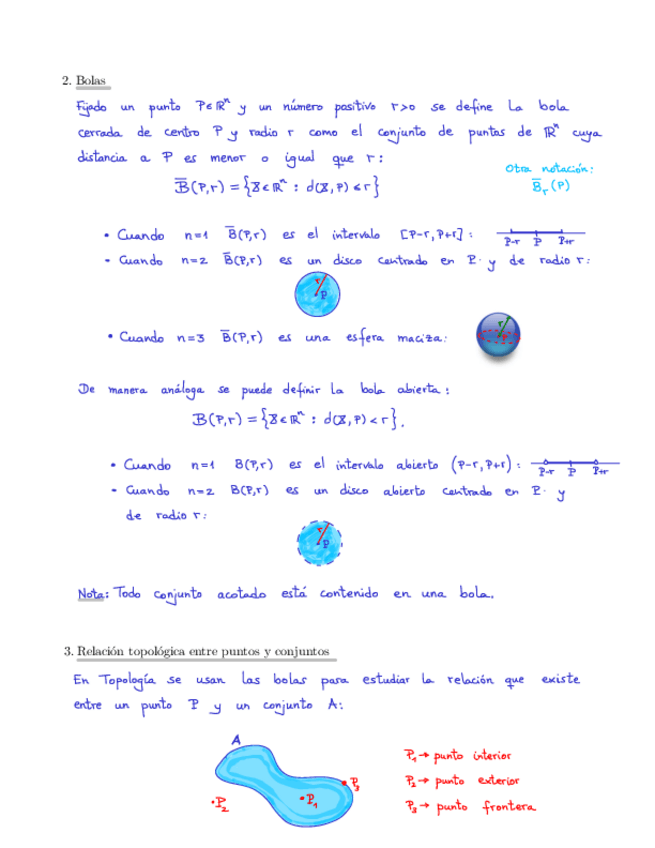 2. Bolas
Fijado un punto P∈ℝⁿ y un número positivo r>0 se define la bola
cerrada de centro P y radio r como el conjunto de puntos de ℝⁿ cuya
distancia a P es menor o igual que r:
Otra notación:
B̅(P,r) = {X∈ℝⁿ : d(X,P) ≤ r}
B̅ᵣ(P)
• Cuando n=1 B̅(P,r) es el intervalo [P-r, P+r] :
P-r P P+r
• Cuando n=2 B̅(P,r) es un disco centrado en P. y de radio r:
r
P
• Cuando n=3 B̅(P,r) es una esfera maciza:
r
De manera análoga se puede definir la bola abierta:
B(P,r) = {X∈ℝⁿ : d(X,P) < r}.
• Cuando n=1 B(P,r) es el intervalo abierto (P-r, P+r) :
P-r P P+r
• Cuando n=2 B(P,r) es un disco abierto centrado en P. y
de radio r:
r
P
Nota: Todo conjunto acotado está contenido en una bola.
3. Relación topológica entre puntos y conjuntos
En Topología se usan las bolas para estudiar la relación que existe
entre un punto P y un conjunto A:
A
P₁ → punto interior
P₃
P₂ → punto exterior
P₂
P₁
P₃ → punto frontera